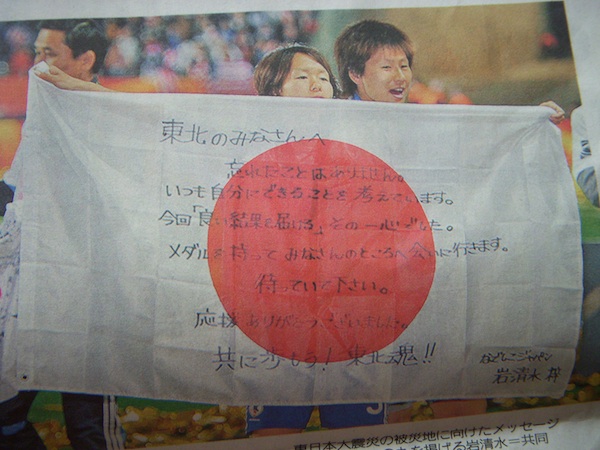 東北のみなさんへ
忘れたことはありません。
いつも自分にできることを考えています。
今回「良い結果を届ける」その一心でした。
メダルを持ってみなさんのところへ会いに行きます。
待っていて下さい。
応援ありがとうございました。
共に歩もう！東北魂!!
なでしこジャパン
岩清水 梓
東日本大震災の被災地に向けたメッセージ
を掲げる岩清水＝共同